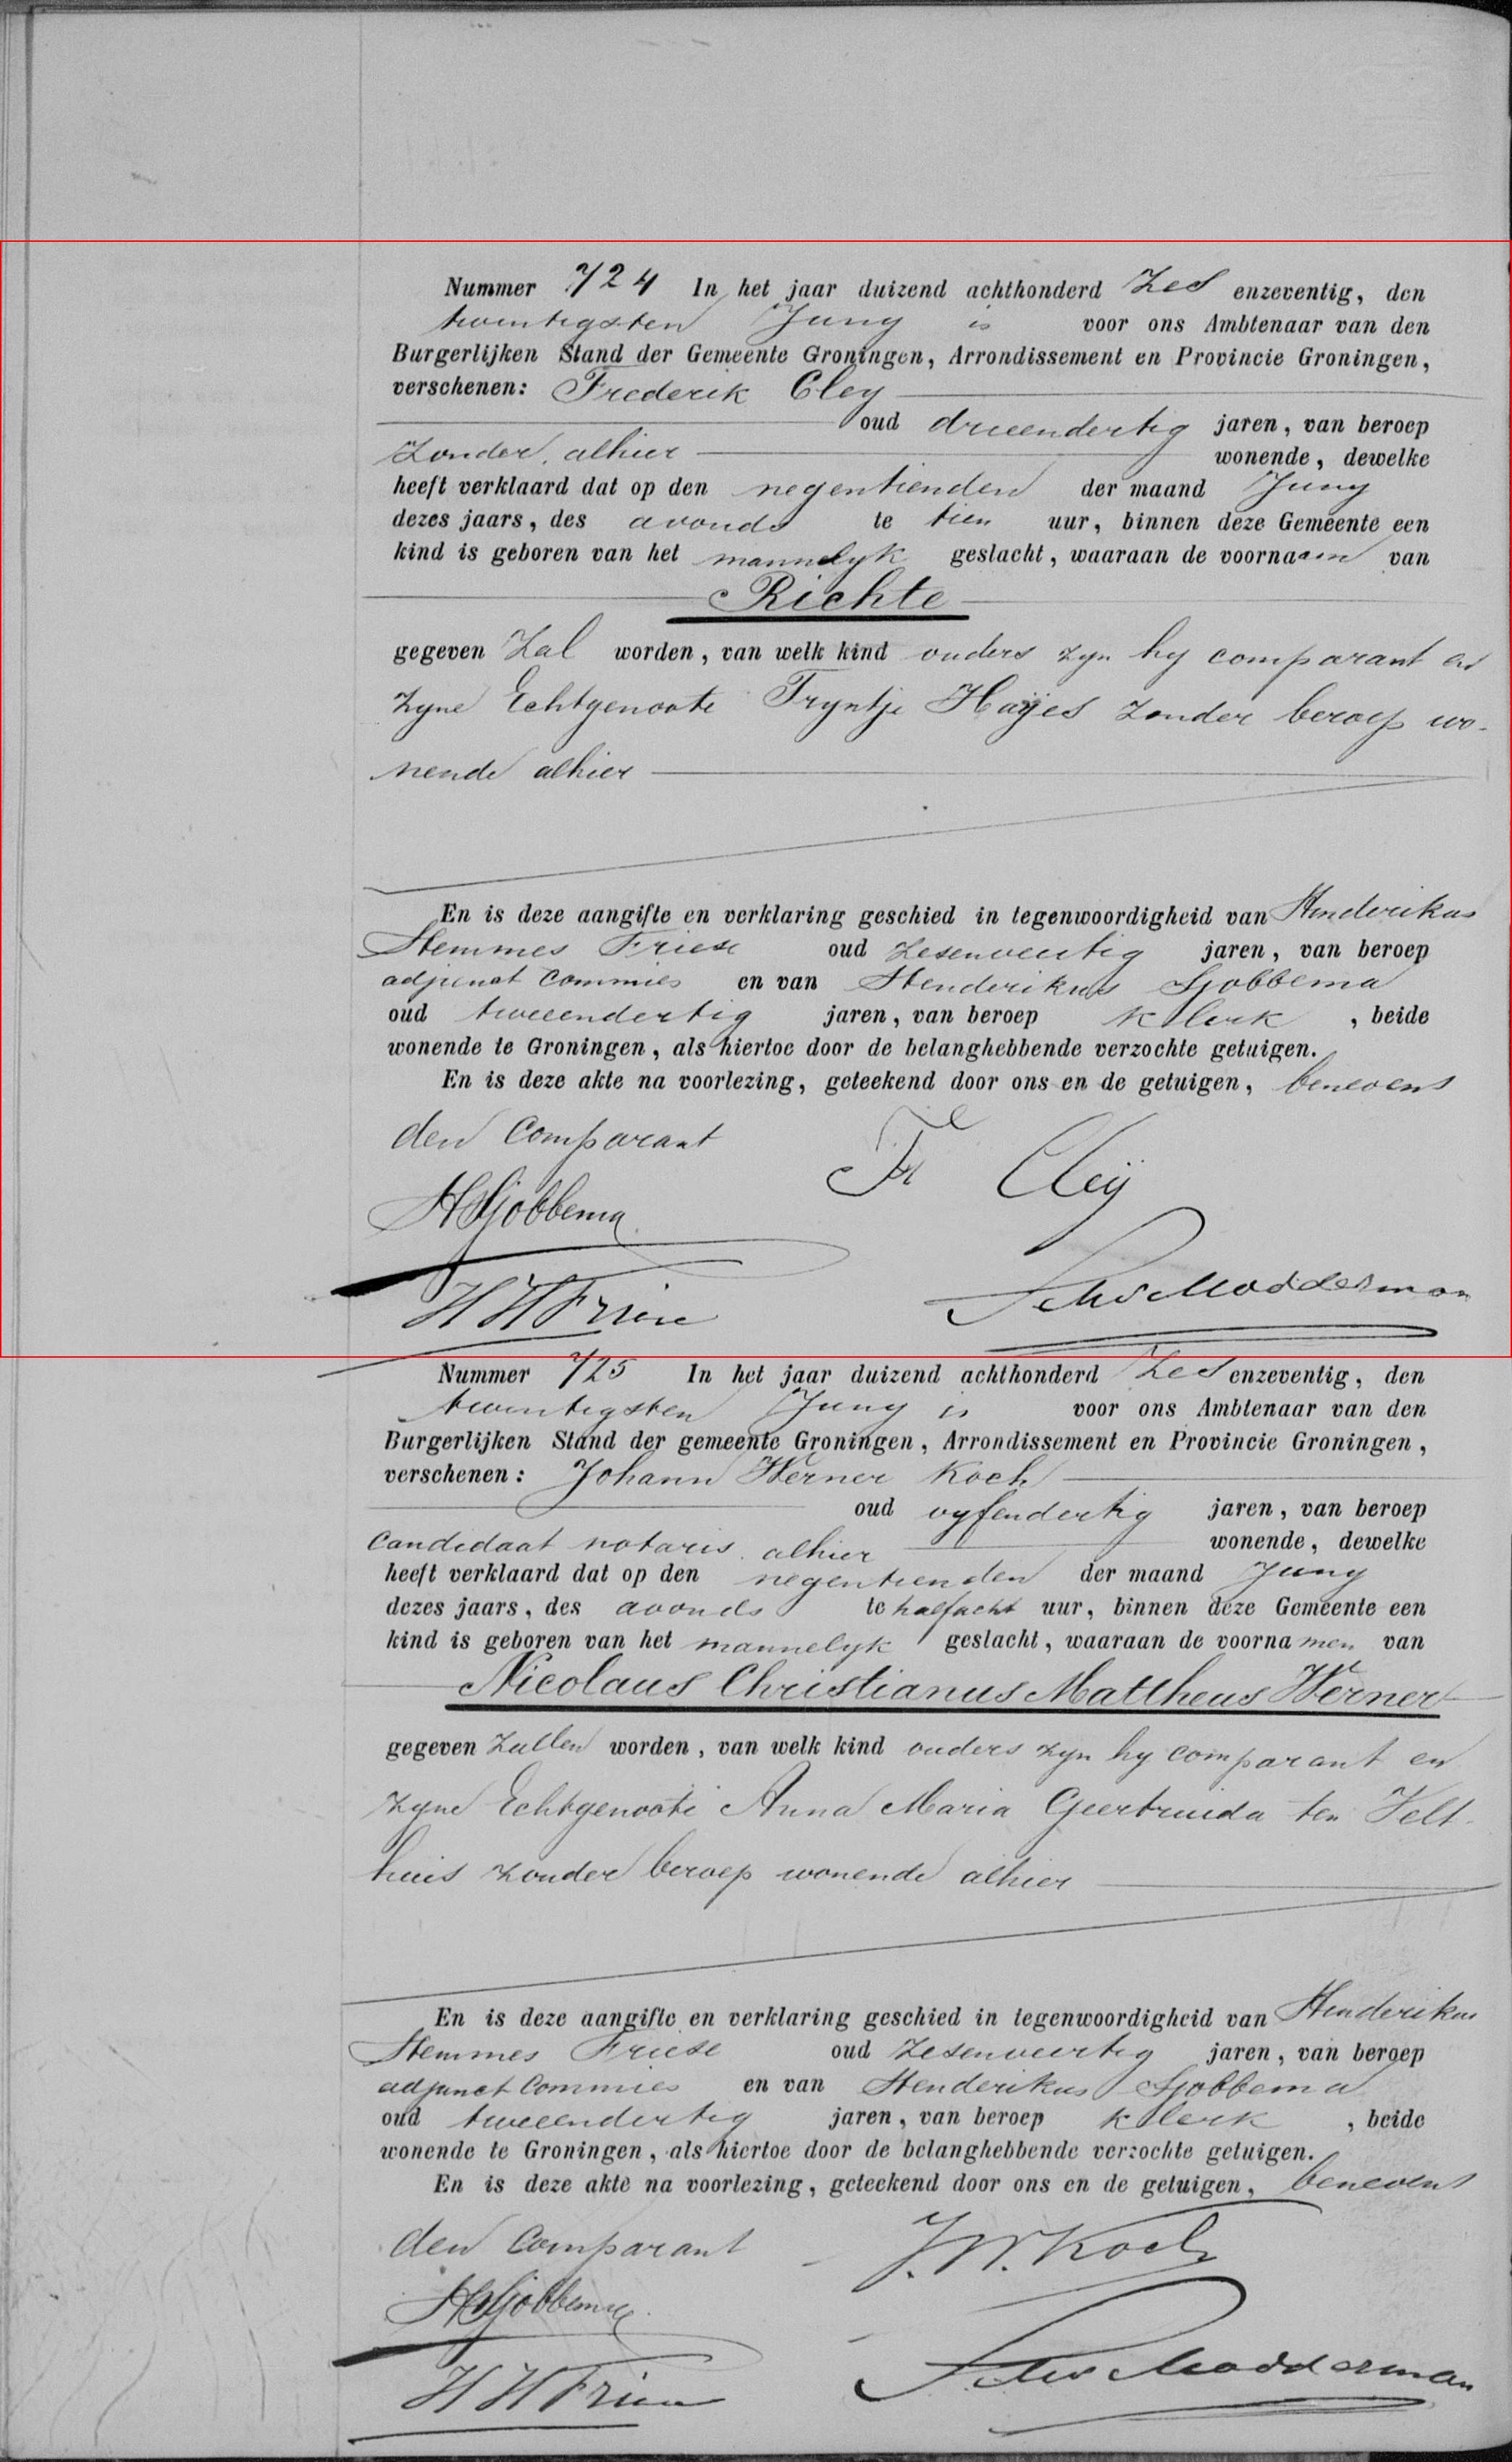 Nummer 724 In het jaar duizend achthonderd Zes enzeventig, den
twintigsten Juny is voor ons Ambtenaar van den
Burgerlijken Stand der Gemeente Groningen, Arrondissement en Provincie Groningen,
verschenen: Frederik Cley
oud drieendertig jaren, van beroep
Zonder, alhier wonende, dewelke
heeft verklaard dat op den negentienden der maand Juny
dezes jaars, des avonds te tien uur, binnen deze Gemeente een
kind is geboren van het mannelyk geslacht, waaraan de voornaam van
Richte
gegeven Zal worden, van welk kind ouders zyn hy comparant en
Zyne Echtgenoote Tryntje Hayes Zonder beroep wo-
nende alhier
En is deze aangifte en verklaring geschied in tegenwoordigheid van Henderikus
Hemmes Friese oud Zesenveertig jaren, van beroep
adjunct Commies en van Henderikus Sjobbema
oud tweeendertig jaren, van beroep Klerk, beide
wonende te Groningen, als hiertoe door de belanghebbende verzochte getuigen.
En is deze akte na voorlezing, geteekend door ons en de getuigen, benevens
den Comparant Fr Cleij
HSjobbema
HHFriese Modderman
Nummer 725 In het jaar duizend achthonderd Zes enzeventig, den
twintigsten Juny is voor ons Ambtenaar van den
Burgerlijken Stand der gemeente Groningen, Arrondissement en Provincie Groningen,
verschenen: Johann Werner Koch
oud vyfendertig jaren, van beroep
Candidaat notaris, alhier wonende, dewelke
heeft verklaard dat op den negentienden der maand Juny
dezes jaars, des avonds te halfacht uur, binnen deze Gemeente een
kind is geboren van het mannelyk geslacht, waaraan de voornamen van
Nicolaus Christianus Mattheus Werner
gegeven Zullen worden, van welk kind ouders zyn hy comparant en
Zyne Echtgenoote Anna Maria Geertruida ten Velt-
huis zonder beroep wonende alhier
En is deze aangifte en verklaring geschied in tegenwoordigheid van Henderikus
Hemmes Friese oud Zesenveertig jaren, van beroep
adjunct Commies en van Henderikus Sjobbema
oud tweeendertig jaren, van beroep Klerk, beide
wonende te Groningen, als hiertoe door de belanghebbende verzochte getuigen.
En is deze akte na voorlezing, geteekend door ons en de getuigen, benevens
den Comparant J.W. Koch
HSjobbema
HHFriese Modderman